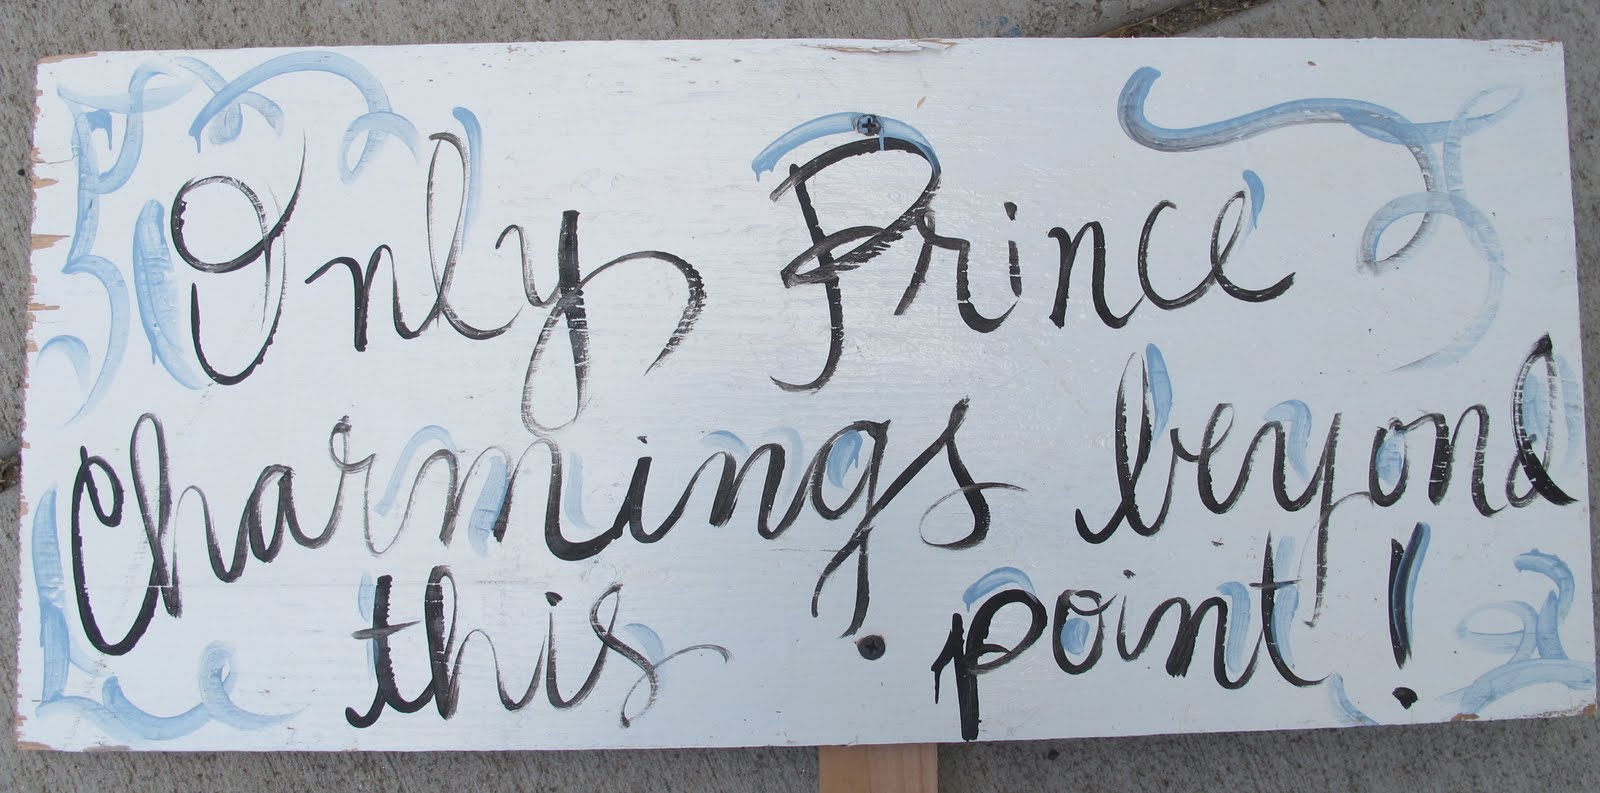 Only Prince
Charmings beyond
this point!